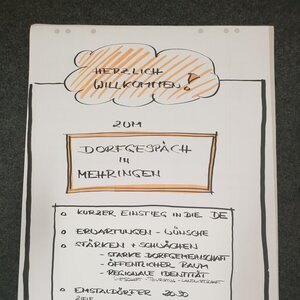 HERZLICH
WILLKOMMEN!
ZUM
DORFGESPÄCH
IN
MEHRINGEN
O KURZER EINSTIEG IN DIE DE
O ERWARTUNGEN - WÜNSCHE
O STÄRKEN + SCHWÄCHEN
- STARKE DORFGEMEINSCHAFT
- ÖFFENTLICHER RAUM
- REGIONALE IDENTITÄT
- TOURISMUS - LANDWIRTSCHAFT
O EMSTALDÖRFER 2030